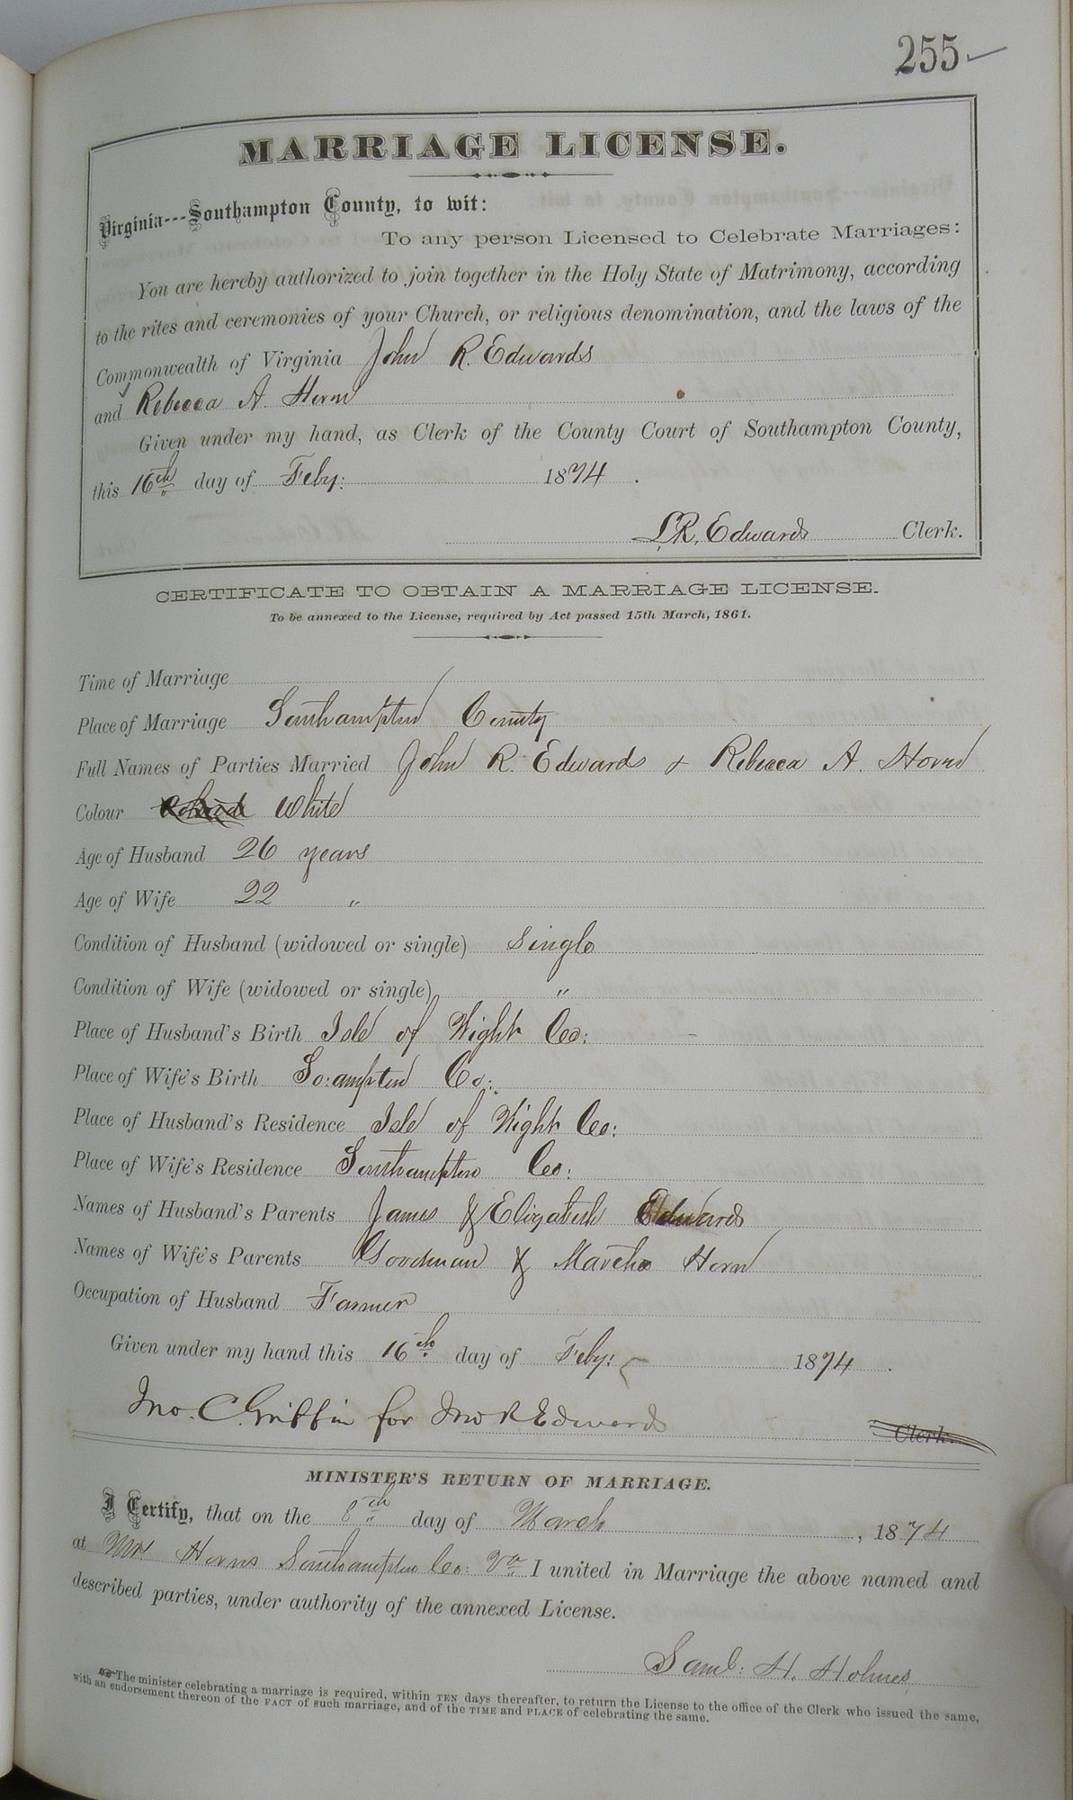 255
MARRIAGE LICENSE.
Virginia---Southampton County, to wit:
To any person Licensed to Celebrate Marriages:
You are hereby authorized to join together in the Holy State of Matrimony, according
to the rites and ceremonies of your Church, or religious denomination, and the laws of the
Commonwealth of Virginia John R. Edwards
and Rebecca A. Horn
Given under my hand, as Clerk of the County Court of Southampton County,
this 16th day of Feby: 1874.
L.R. Edwards Clerk.
CERTIFICATE TO OBTAIN A MARRIAGE LICENSE.
To be annexed to the License, required by Act passed 15th March, 1861.
Time of Marriage
Place of Marriage Southampton County
Full Names of Parties Married John R. Edwards & Rebecca A. Horn
Colour Colored White
Age of Husband 26 years
Age of Wife 22 "
Condition of Husband (widowed or single) Single
Condition of Wife (widowed or single) "
Place of Husband's Birth Isle of Wight Co:
Place of Wife's Birth So:ampton Co:
Place of Husband's Residence Isle of Wight Co:
Place of Wife's Residence Southampton Co:
Names of Husband's Parents James & Elizabeth Edwards
Names of Wife's Parents Goodman & Martha Horn
Occupation of Husband Farmer
Given under my hand this 16th day of Feby: 1874.
Jno. C. Griffin for Jno R Edwards Clerk.
MINISTER'S RETURN OF MARRIAGE.
I Certify, that on the 8th day of March, 1874
at Horns Southampton Co: Va I united in Marriage the above named and
described parties, under authority of the annexed License.
Saml: H. Holmes
The minister celebrating a marriage is required, within TEN days thereafter, to return the License to the office of the Clerk who issued the same,
with an endorsement thereon of the FACT of such marriage, and of the TIME and PLACE of celebrating the same.